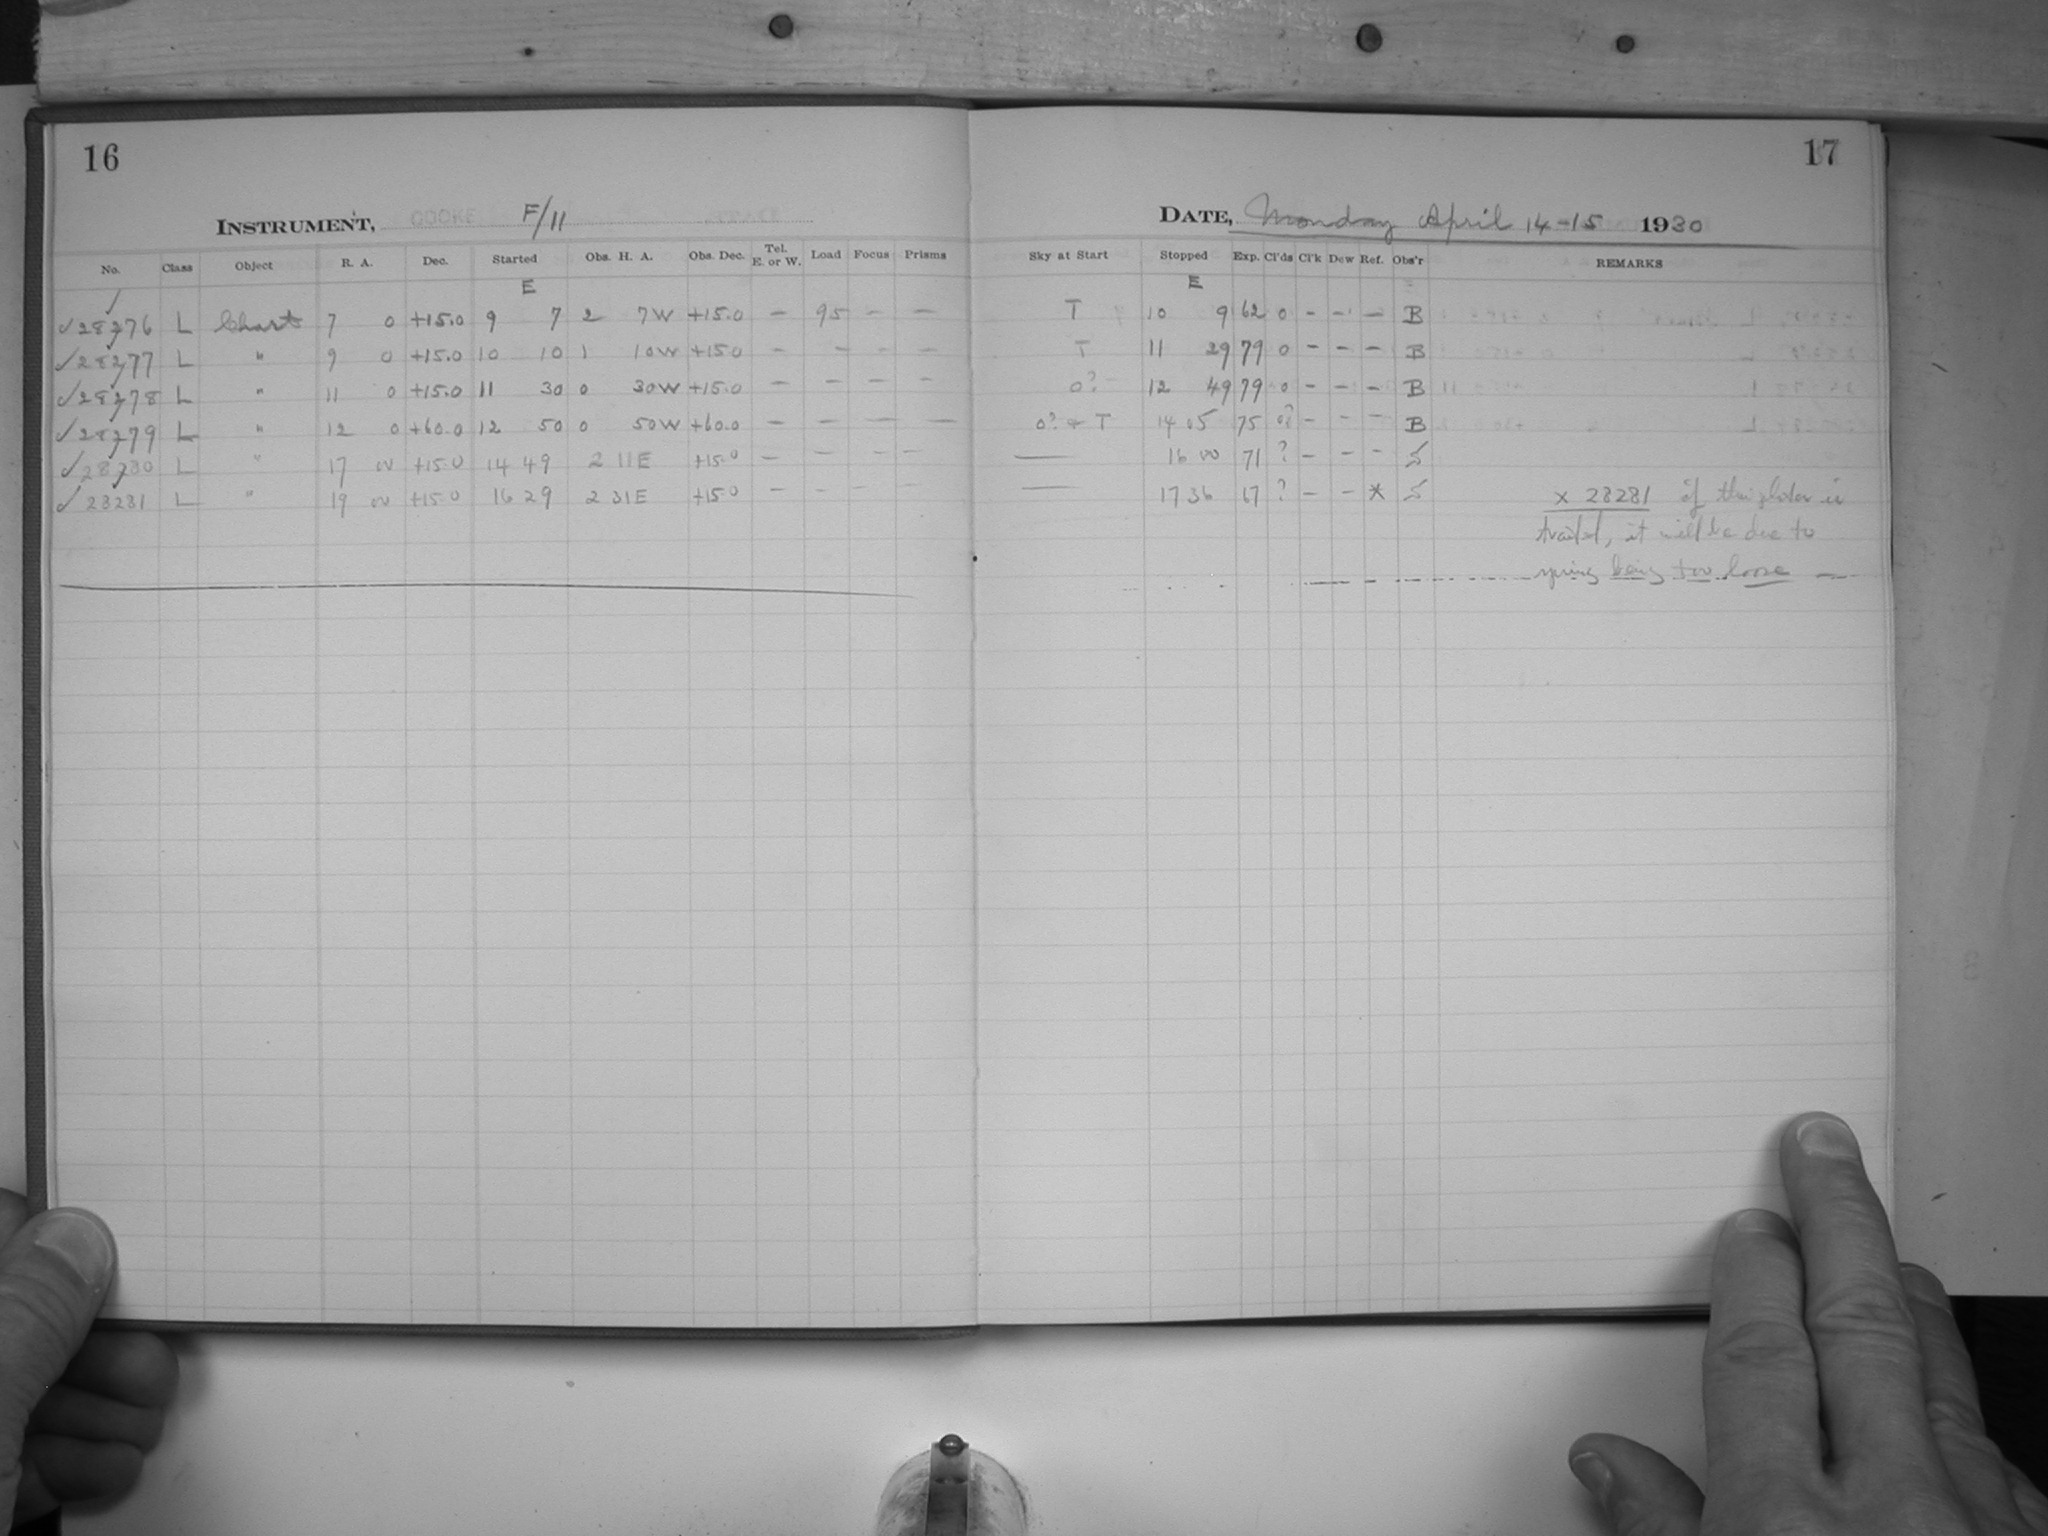 16
INSTRUMENT, COOKE F/11
No. Class Object R. A. Dec. Started Obs. H. A. Obs. Dec. Tel. E. or W. Load Focus Prisms
E
✓28276 L Chart 7 0 +15.0 9 7 2 7W +15.0 — 95 — —
✓28277 L " 9 0 +15.0 10 10 1 10W +15.0 — — — —
✓28278 L " 11 0 +15.0 11 30 0 30W +15.0 — — — —
✓28279 L " 12 0 +60.0 12 50 0 50W +60.0 — — — —
✓28280 L " 17 00 +15.0 14 49 2 11E +15.0 — — — —
✓28281 L " 19 00 +15.0 16 29 2 31E +15.0 — — — —
17
DATE, Monday April 14-15 1930
Sky at Start Stopped Exp. Cl'ds Cl'k Dew Ref. Obs'r REMARKS
E
T 10 9 62 0 — — — B
T 11 29 79 0 — — — B
0? 12 49 79 0 — — — B
0? + T 14 05 75 0? — — — B
— 16 00 71 ? — — — S
— 17 36 67 ? — — * S x 28281 if this plate is
trailed, it will be due to
spring being too loose